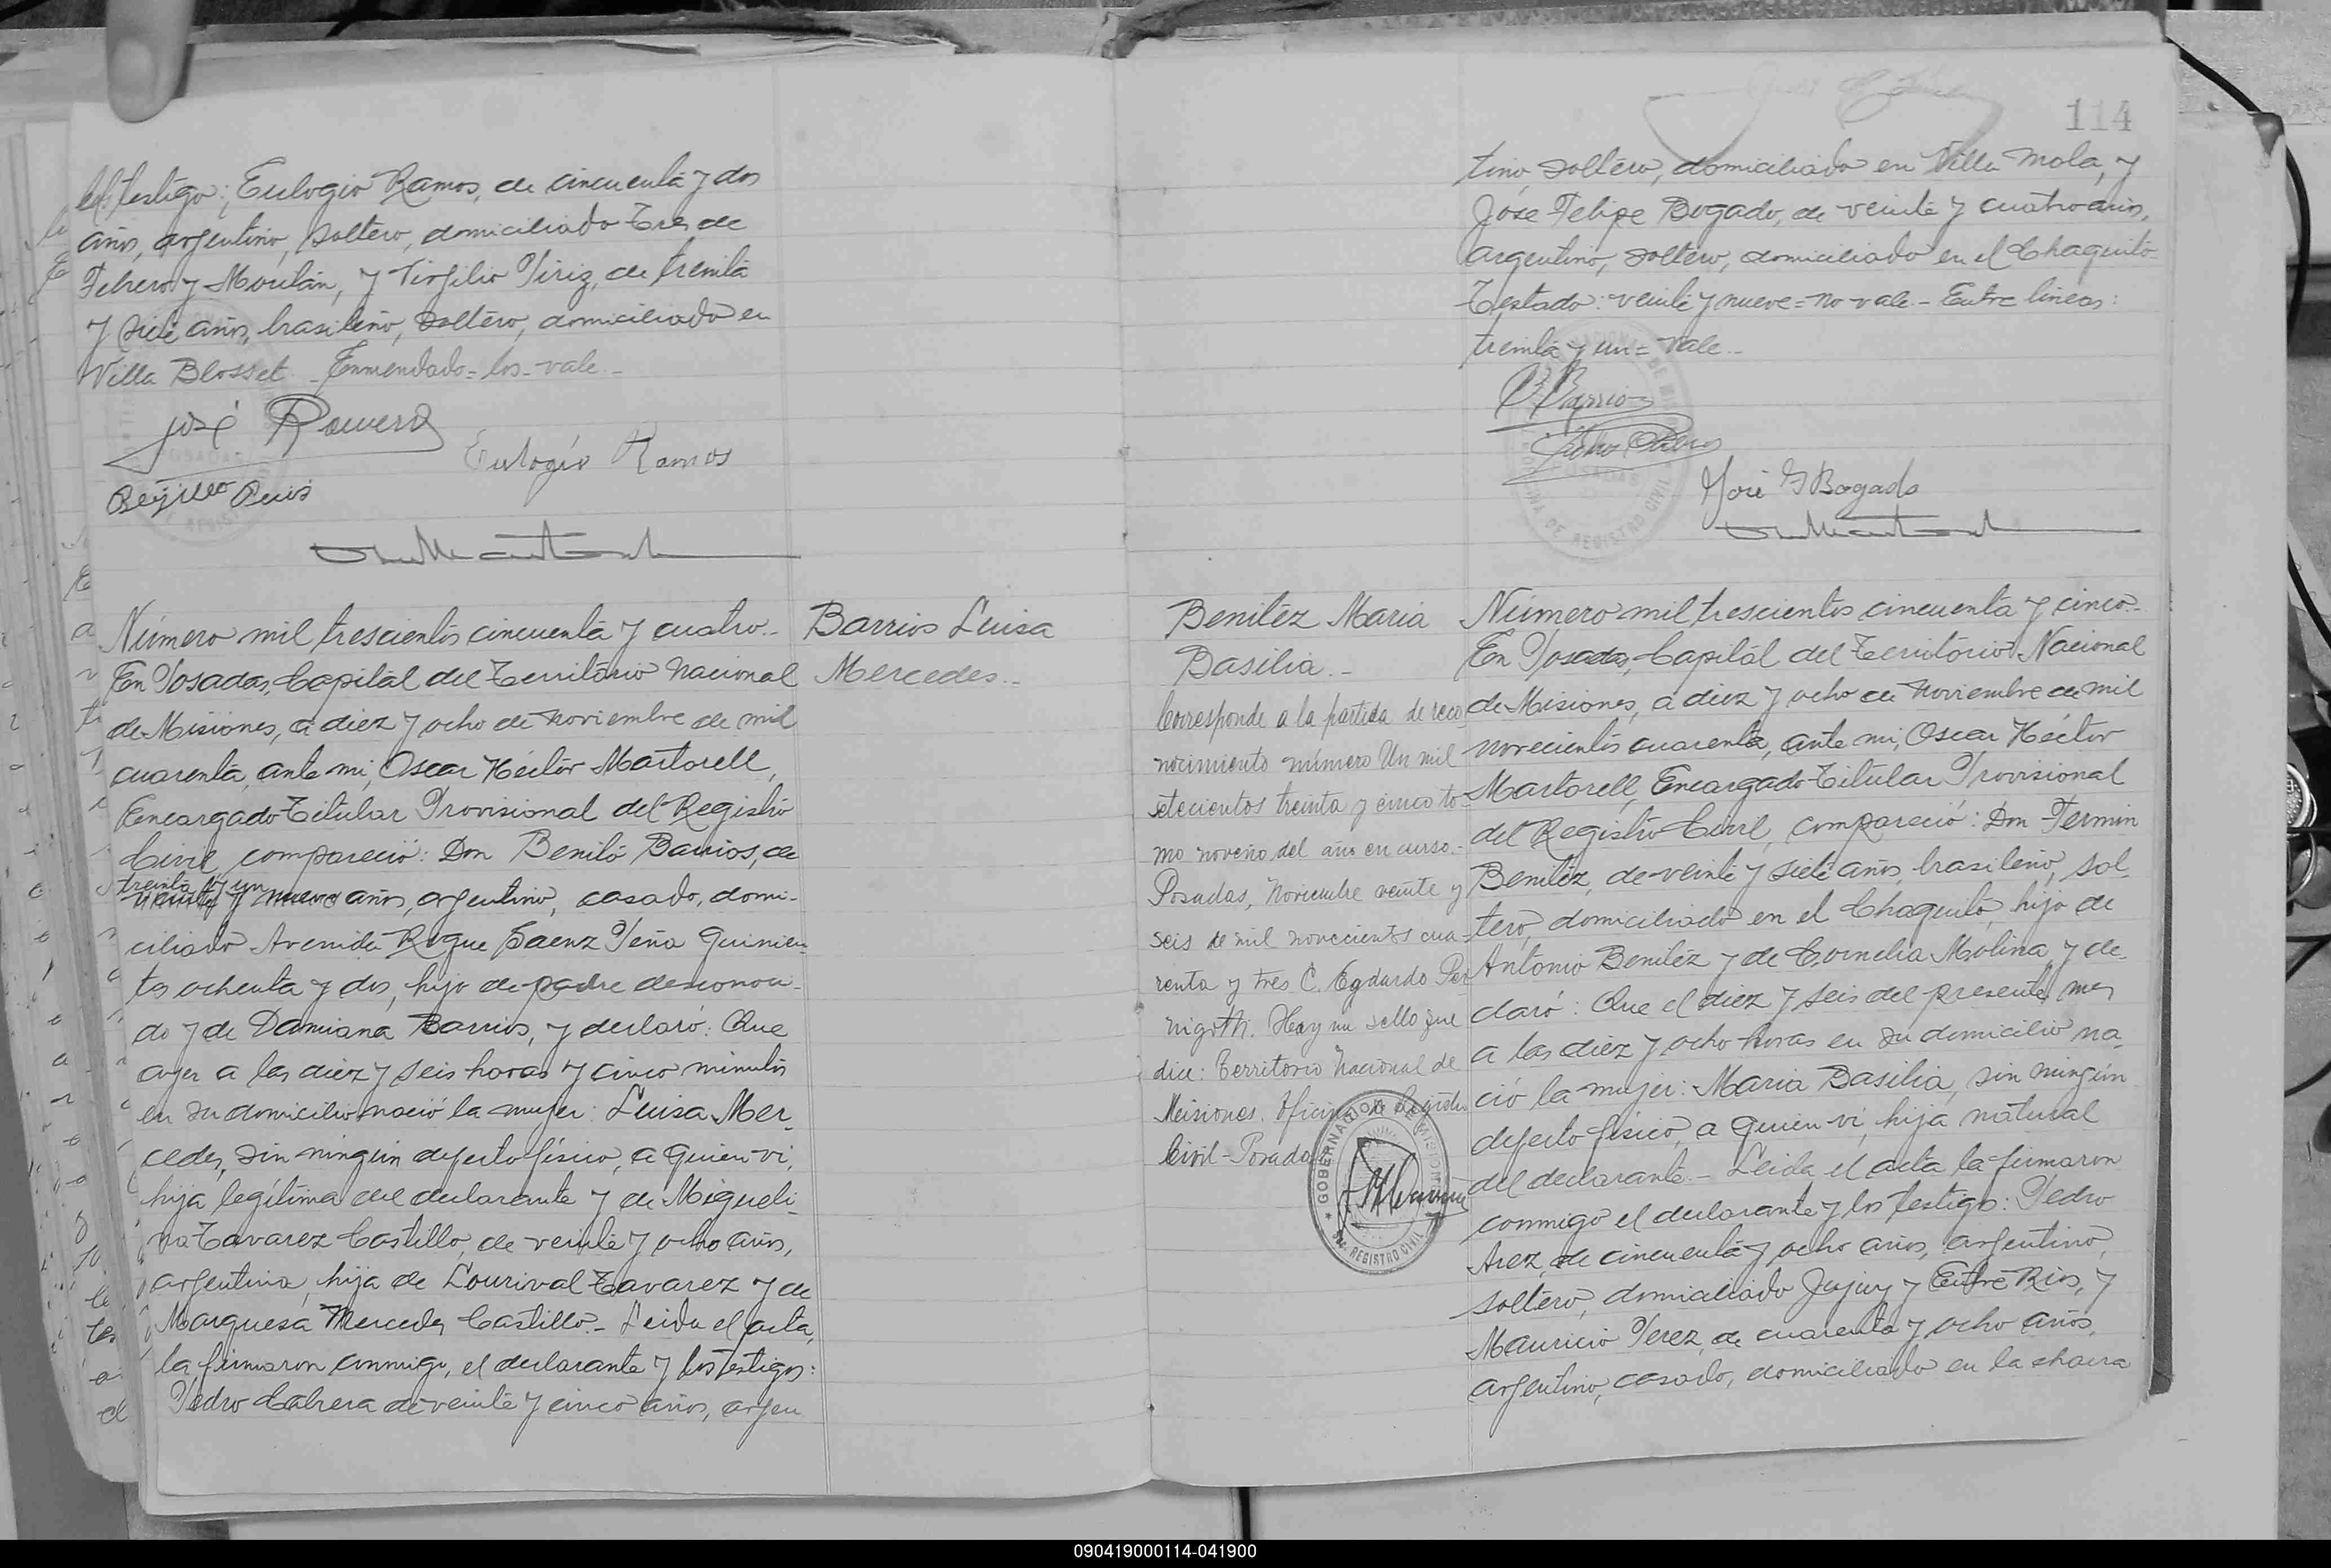 los testigo: Eulogio Ramos, de cincuenta y dos
años, argentino, soltero, domiciliado Tres de
Febrero y Moritán, y Virgilio Piriz, de treinta
y siete años, brasileño, soltero, domiciliado en
Villa Blosset - Enmendado = los - vale. -
José Romero
Eulogio Ramos
Número mil trescientos cincuenta y cuatro. -
En Posadas, Capital del Territorio Nacional
de Misiones, a diez y ocho de Noviembre de mil
cuarenta, ante mi, Oscar Héctor Martorell,
Encargado Titular Provisional del Registro
Civil, compareció: Don Benito Barrios, de
treinta y un
veinte y nueve años, argentino, casado, domi-
ciliado Avenida Roque Saenz Peña Quinien-
tos ochenta y dos, hijo de padre desconoci-
do y de Damiana Barrios, y declaró: Que
ayer a las diez y seis horas y cinco minutos
en su domicilio nació la mujer: Luisa Mer-
cedes, sin ningún defecto físico, a quien vi,
hija legítima del declarante y de Migueli-
na Tavarez Castillo, de veinte y ocho años,
argentina, hija de Lourival Tavarez y de
Marquesa Mercedes Castillo. - Leida el acta,
la firmaron conmigo, el declarante y los testigos:
Pedro Cabrera de veinte y cinco años, argen
Barrios Luisa
Mercedes. -
114
tino, soltero, domiciliado en Villa Mola, y
José Felipe Bogado, de veinte y cuatro años,
argentino, soltero, domiciliado en el Chaquito -
Testado: veinte y nueve = no vale. - Entre lineas:
treinta y un = vale. -
B Barrios
José F Bogado
Benitez Maria
Basilia. -
Corresponde a la partida de reco
nocimiento número Un mil
setecientos treinta y cinco to-
mo noveno del año en curso. -
Posadas, Noviembre veinte y
seis de mil novecientos cua-
renta y tres C. Egdardo Per
nigotti. Hay un sello que
dice: Territorio Nacional de
Misiones. Oficina de Registro
Civil - Posadas
GOBERNACION DE MISIONES
REGISTRO CIVIL
Número mil trescientos cincuenta y cinco. -
En Posadas, Capital del Territorio Nacional
de Misiones, a diez y ocho de Noviembre de mil
novecientos cuarenta, ante mi, Oscar Héctor
Martorell, Encargado Titular Provisional
del Registro Civil, compareció: Don Fermin
Benitez, de veinte y siete años, brasileño, sol-
tero, domiciliado en el Chaquito, hijo de
Antonio Benitez y de Cornelia Molina, y de-
claró: Que el diez y seis del presente mes
a las diez y ocho horas en su domicilio na-
ció la mujer: Maria Basilia, sin ningún
defecto físico, a quien vi, hija natural
del declarante. - Leida el acta la firmaron
conmigo el declarante y los testigos: Pedro
Arez, de cincuenta y ocho años, argentino,
soltero, domiciliado Jujuy y Entre Rios, y
Mauricio Perez, de cuarenta y ocho años,
argentino, casado, domiciliado en la chacra
090419000114-041900